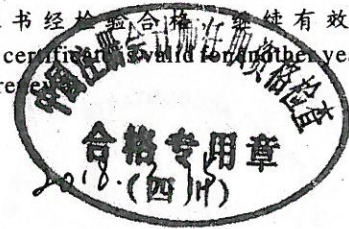 书经检验合格，继续有效
certificate is valid for another ye
rene
中国注册会计师任职资格检查
合格专用章
2018.
(四川)